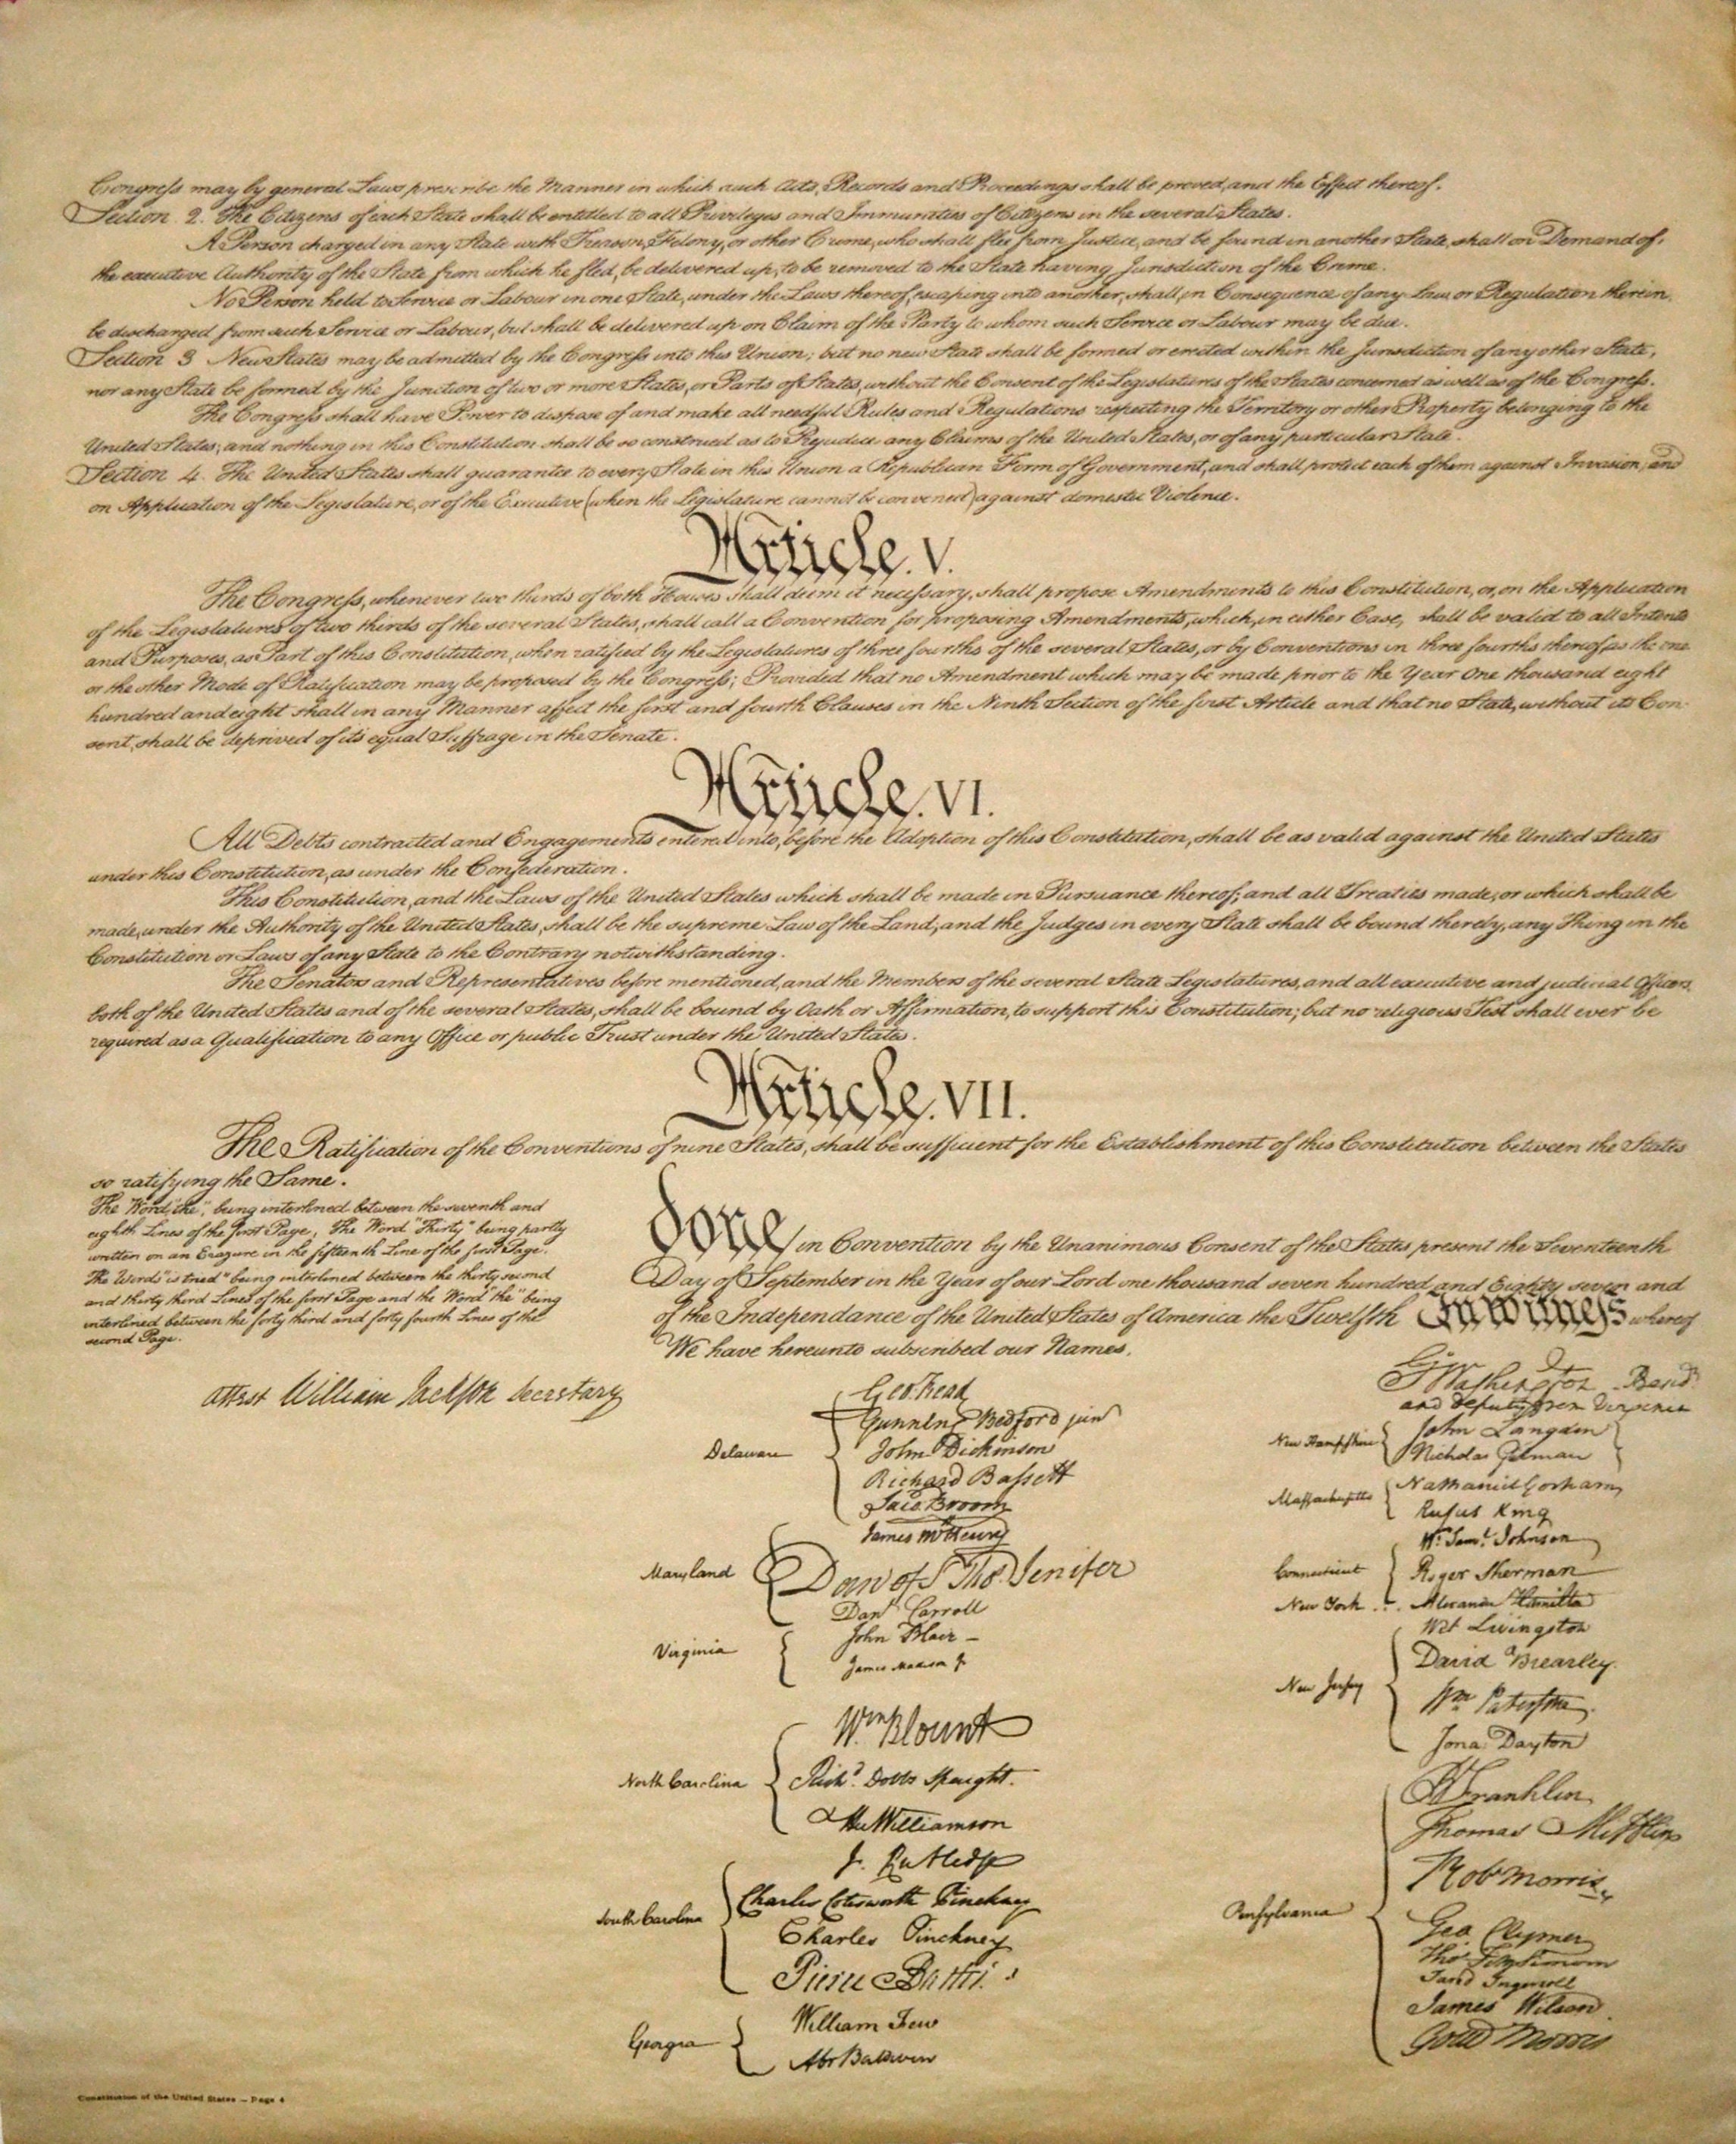 Congress may by general Laws prescribe the Manner in which such Acts, Records and Proceedings shall be proved, and the Effect thereof.
Section 2. The Citizens of each State shall be entitled to all Privileges and Immunities of Citizens in the several States.
A Person charged in any State with Treason, Felony, or other Crime, who shall flee from Justice, and be found in another State, shall on Demand of
the executive Authority of the State from which he fled, be delivered up, to be removed to the State having Jurisdiction of the Crime.
No Person held to Service or Labour in one State, under the Laws thereof, escaping into another, shall, in Consequence of any Law or Regulation therein,
be discharged from such Service or Labour, but shall be delivered up on Claim of the Party to whom such Service or Labour may be due.
Section 3 New States may be admitted by the Congress into this Union; but no new State shall be formed or erected within the Jurisdiction of any other State,
nor any State be formed by the Junction of two or more States, or Parts of States, without the Consent of the Legislatures of the States concerned as well as of the Congress.
The Congress shall have Power to dispose of and make all needful Rules and Regulations respecting the Territory or other Property belonging to the
United States; and nothing in this Constitution shall be so construed as to Prejudice any Claims of the United States, or of any particular State.
Section 4. The United States shall guarantee to every State in this Union a Republican Form of Government, and shall protect each of them against Invasion; and
on Application of the Legislature, or of the Executive (when the Legislature cannot be convened) against domestic Violence.
Article. V.
The Congress, whenever two thirds of both Houses shall deem it necessary, shall propose Amendments to this Constitution, or, on the Application
of the Legislatures of two thirds of the several States, shall call a Convention for proposing Amendments, which, in either Case, shall be valid to all Intents
and Purposes, as Part of this Constitution, when ratified by the Legislatures of three fourths of the several States, or by Conventions in three fourths thereof, as the one
or the other Mode of Ratification may be proposed by the Congress; Provided that no Amendment which may be made prior to the Year One thousand eight
hundred and eight shall in any Manner affect the first and fourth Clauses in the Ninth Section of the first Article and that no State, without its Con-
sent, shall be deprived of its equal Suffrage in the Senate.
Article. VI.
All Debts contracted and Engagements entered into, before the Adoption of this Constitution, shall be as valid against the United States
under this Constitution, as under the Confederation.
This Constitution, and the Laws of the United States which shall be made in Pursuance thereof; and all Treaties made, or which shall be
made, under the Authority of the United States, shall be the supreme Law of the Land; and the Judges in every State shall be bound thereby, any Thing in the
Constitution or Laws of any State to the Contrary notwithstanding.
The Senators and Representatives before mentioned, and the Members of the several State Legislatures, and all executive and judicial Officers,
both of the United States and of the several States, shall be bound by Oath or Affirmation, to support this Constitution; but no religious Test shall ever be
required as a Qualification to any Office or public Trust under the United States.
Article. VII.
The Ratification of the Conventions of nine States, shall be sufficient for the Establishment of this Constitution between the States
so ratifying the Same.
The Word, "the", being interlined between the seventh and
eighth Lines of the first Page, The Word "Thirty" being partly
written on an Erazure in the fifteenth Line of the first Page.
The Words "is tried" being interlined between the thirty second
and thirty third Lines of the first Page and the Word "the" being
interlined between the forty third and forty fourth Lines of the
second Page.
attest William Jackson Secretary
Done in Convention by the Unanimous Consent of the States present the Seventeenth
Day of September in the Year of our Lord one thousand seven hundred and Eighty seven and
of the Independance of the United States of America the Twelfth In Witness whereof
We have hereunto subscribed our Names,
Delaware
Geo: Read
Gunning Bedford jun
John Dickinson
Richard Bassett
Jaco: Broom
Maryland
James McHenry
Dan of St Tho. Jenifer
Danl Carroll
Virginia
John Blair –
James Madison Jr
North Carolina
Wm Blount
Richd. Dobbs Spaight.
Hu Williamson
South Carolina
J. Rutledge
Charles Cotesworth Pinckney
Charles Pinckney
Pierce Butler.
Georgia
William Few
Abr Baldwin
Go Washington Presidt
and deputy from Virginia
New Hampshire
John Langdon
Nicholas Gilman
Massachusetts
Nathaniel Gorham
Rufus King
Connecticut
Wm. Saml. Johnson
Roger Sherman
New York . . . Alexander Hamilton
New Jersey
Wil Livingston
David Brearley.
Wm Paterson.
Jona Dayton
Pensylvania
B Franklin
Thomas Mifflin
Robt Morris
Geo. Clymer
Tho FitzSimons
Jared Ingersoll
James Wilson
Gouv Morris
Constitution of the United States — Page 4